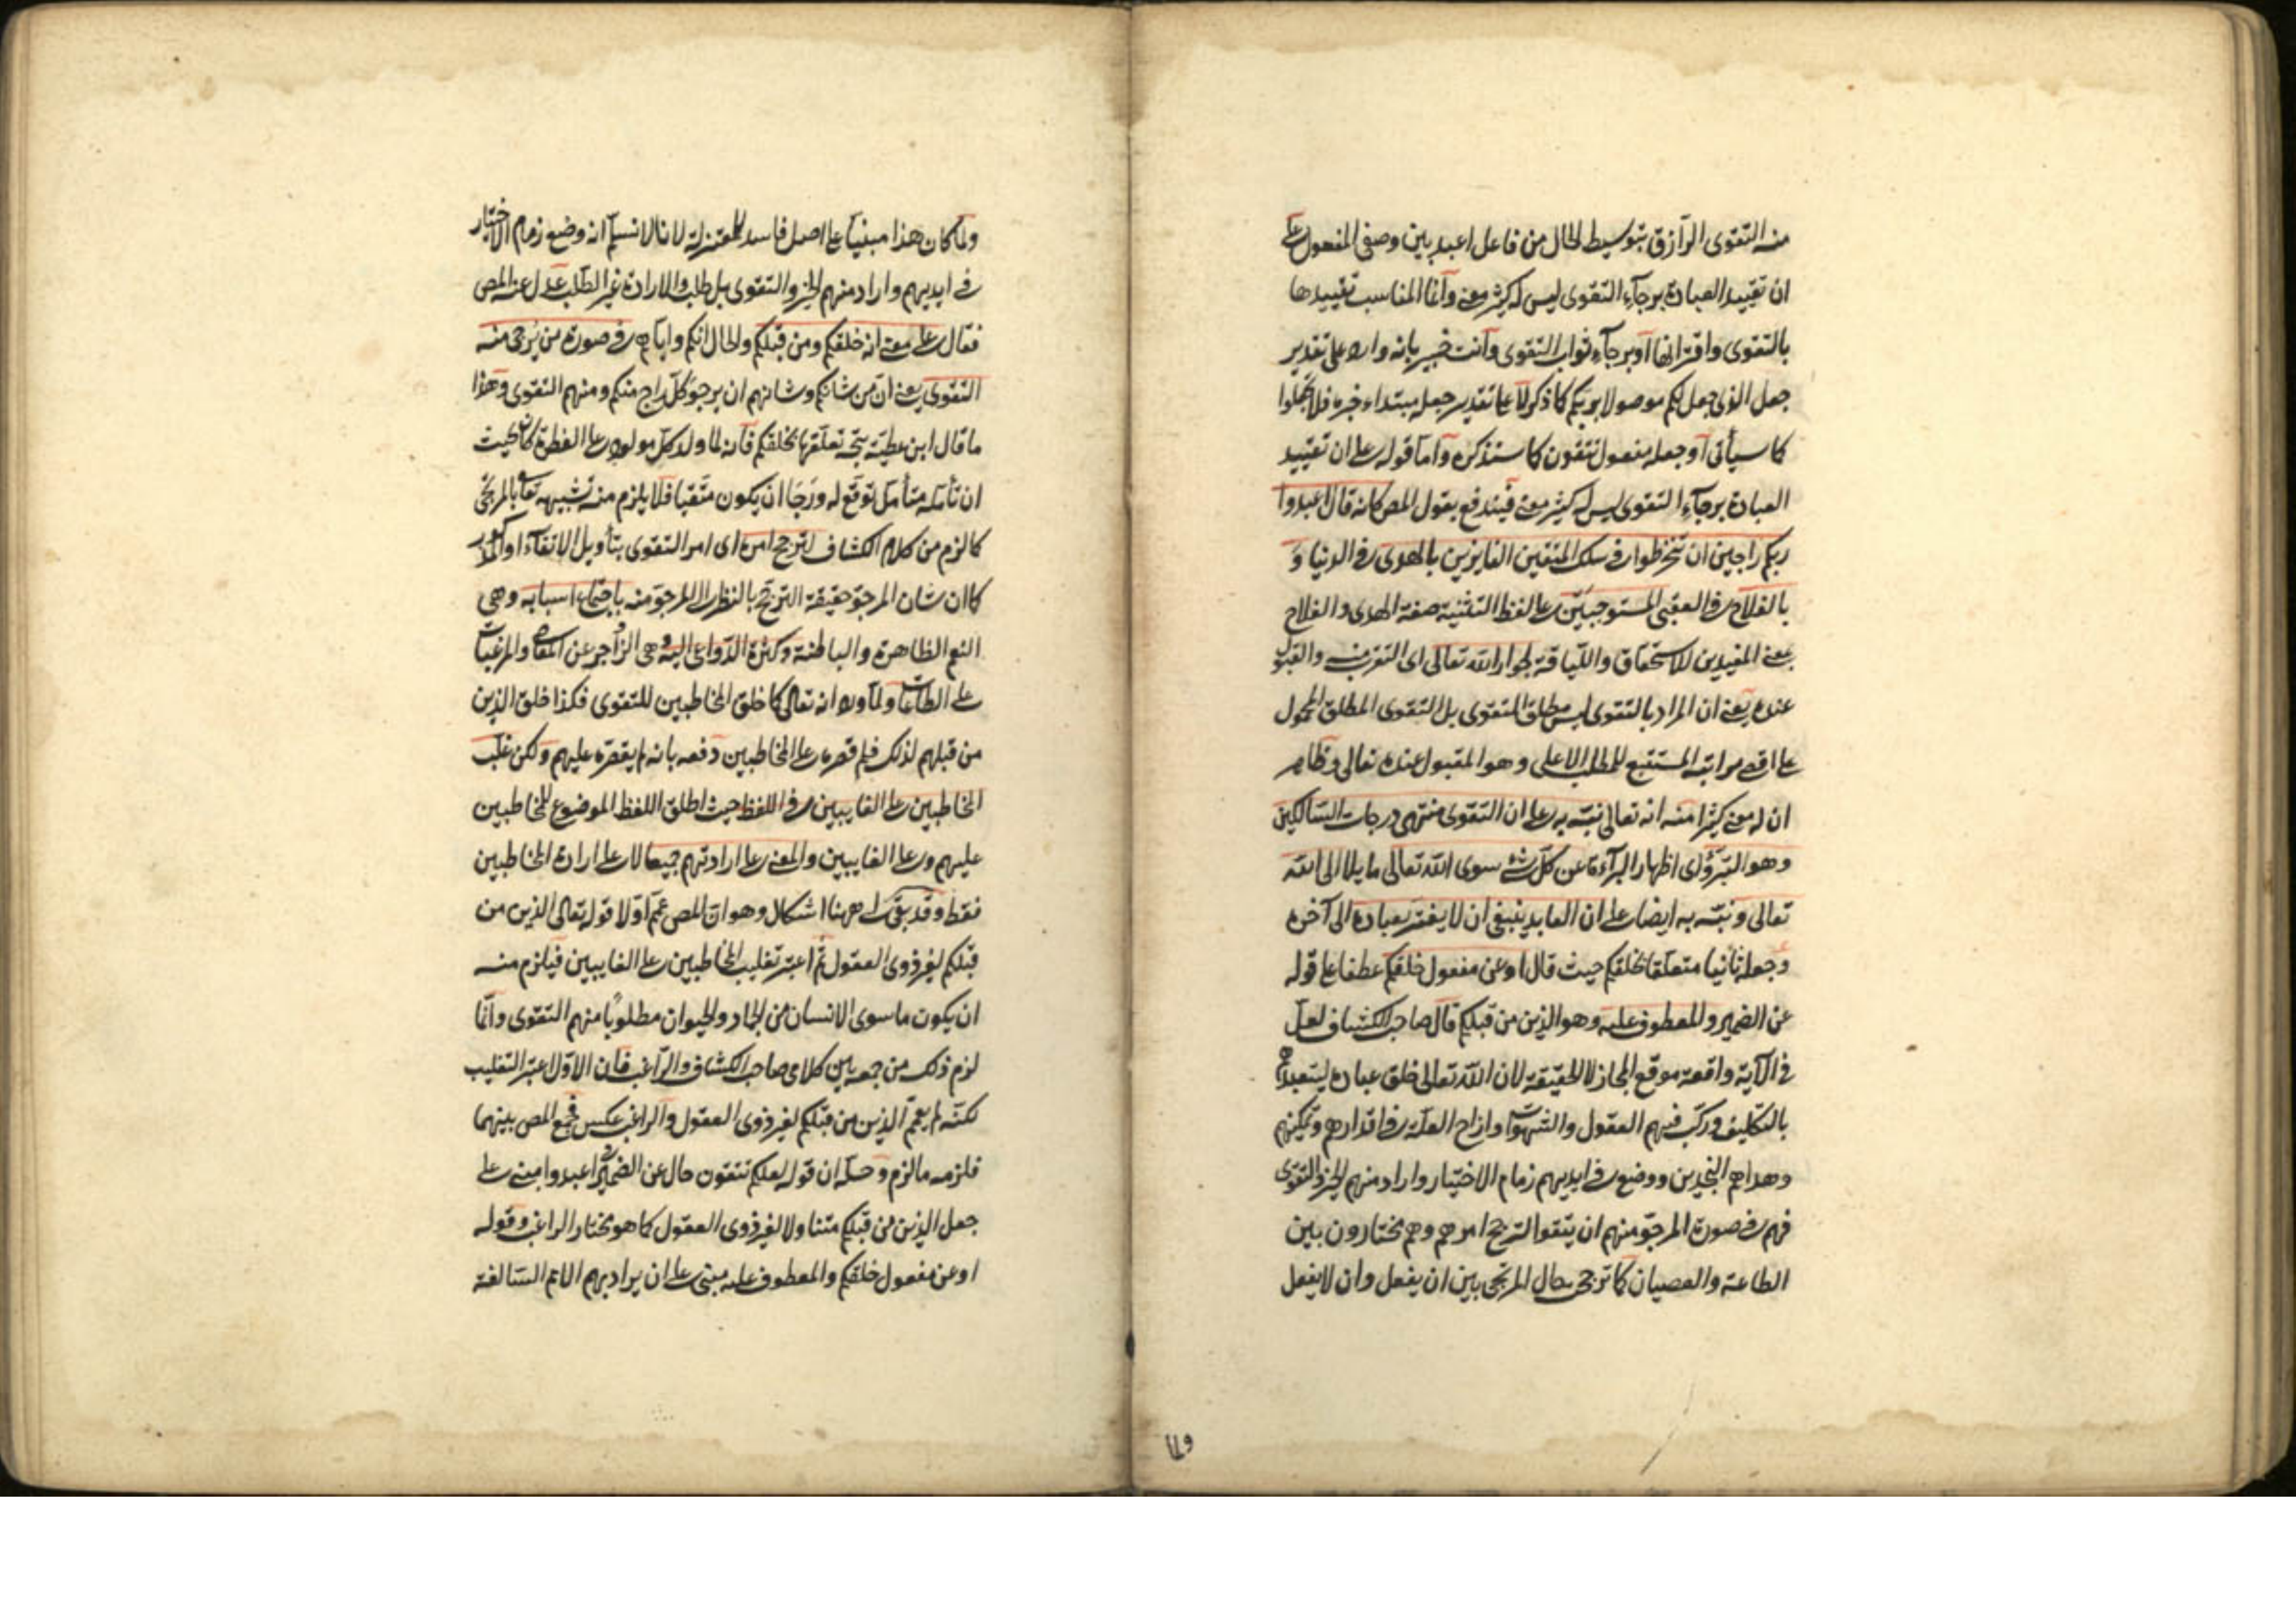 منه التقوى الرازق بتوسيط الحال من فاعل اعبد بين وصفى المفعول على
ان تقييد العبادة برجآء التقوى ليس له كثير معنى وانما المناسب تقييدها
بالتقوى واقترانها او برجآء ثواب التقوى وانت خبير بانه وارد على تقدير
جعل الذى جعل لكم موصولا بربكم كما ذكر لا على تقدير جعله مبتداء خبره فلا تجعلوا
كما سيأتى او جعله مفعول تتقون كما ستذكره واما قوله على ان تقييد
العبادة برجآء التقوى ليس له كثير معنى فيندفع بقول المص كانه قال اعبدوا
ربكم راجين ان تنخرطوا فى سلك المتقين الفايزين بالهدى فى الدنيا و
بالفلاح فى العقبى المستوجبين على لفظ التثنية صفة الهدى والفلاح
بمعنى المفيدين للاستحقاق واللياقة لجوار الله تعالى اى التقرب منه والقبول
عنده يعنى ان المراد بالتقوى ليس مطلق التقوى بل التقوى المطلق المحمول
على اقصى مراتبه المستتبع للمطلب الاعلى وهو المقبول عنده تعالى وظاهر
ان له معنى كثيرا منه انه تعالى نبّه به على ان التقوى منتهى درجات السالكين
وهو التبرّؤ اى اظهار البرآءة عن كل شئ سوى الله تعالى مايلا الى الله
تعالى ونبّه به ايضا على ان العابد ينبغى ان لا يغتر بعبادة الى آخره
وجعله ثانيا متعلقا بخلقكم حيث قال او عن مفعول خلقكم عطفا على قوله
عن الضمير والمعطوف عليه وهو الذين من قبلكم قال صاحب الكشاف لعل
فى الآية واقعة موقع المجاز لا الحقيقة لان الله تعالى خلق عباده ليتعبدهم
بالتكليف وركّب فيهم العقول والشهوات وازاح العلة فى اقدارهم وتمكينهم
وهداهم النجدين ووضع فى ايديهم زمام الاختيار واراد منهم الخير والتقوى
فهم فى صورة المرجوّ منهم ان يتقوا لترجح امرهم وهم مختارون بين
الطاعة والعصيان كما ترجح حال المرتجى بين ان يفعل وان لا يفعل
٢١٩
ولما كان هذا مبنيا على اصل فاسد للمعتزلة لانا لا نسلم انه وضع زمام الاختيار
فى ايديهم واراد منهم الخير والتقوى بل طلب والارادة غير الطلب عدل عنه المص
فقال على معنى انه خلقكم ومن قبلكم والحال انكم واياهم فى صورة من يرجى منه
التقوى يعنى ان من شانكم وشانهم ان يرجو كل راج منكم ومنهم التقوى وهذا
ما قال ابن عطية يتجه تعلقها بخلقكم فانه لما ولد كل مولود على الفطرة كان بحيث
ان تأمله متأمل توقع له ورجا ان يكون متقيا فلا يلزم منه تشبيهه تعالى بالمرتجى
كما لزم من كلام الكشاف لترجح امره اى امر التقوى بتأويل الاتقآء او المذكور
كما ان شان المرجوّ حقيقة الترجح بالنظر الى المرجو منه باجتماع اسبابه وهى
النعم الظاهرة والباطنة وكثرة الدواعى اليه وهى الزواجر عن المعاصى والمرغبات
على الطاعات ولما ورد انه تعالى كما خلق المخاطبين للتقوى فكذا خلق الذين
من قبلهم لذلك فلم قصره على المخاطبين دفعه بانه لم يقصره عليهم ولكن غلّب
المخاطبين على الغايبين فى اللفظ حيث اطلق اللفظ الموضوع للمخاطبين
عليهم وعلى الغايبين والمعنى على ارادتهم جميعا لا على ارادة المخاطبين
فقط وقد بقى ههنا اشكال وهو ان المص عمم اولا قوله تعالى الذين من
قبلكم لغير ذوى العقول ثم اعتبر تغليب المخاطبين على الغايبين فيلزم منه
ان يكون ما سوى الانسان من الجماد والحيوان مطلوبا منهم التقوى وانما
لزم ذلك من جمعه بين كلامى صاحب الكشاف والراغب فان الاول اعتبر التغليب
لكنه لم يعمم الذين من قبلكم لغير ذوى العقول والراغب عكس فجمع المص بينهما
فلزمه ما لزم وحله ان قوله لعلكم تتقون حال عن الضمير فى اعبدوا مبنى على
جعل الذين من قبلكم متناولا لغير ذوى العقول كما هو مختار الراغب وقوله
او عن مفعول خلقكم والمعطوف عليه مبنى على ان يراد بهم الامم السالفة